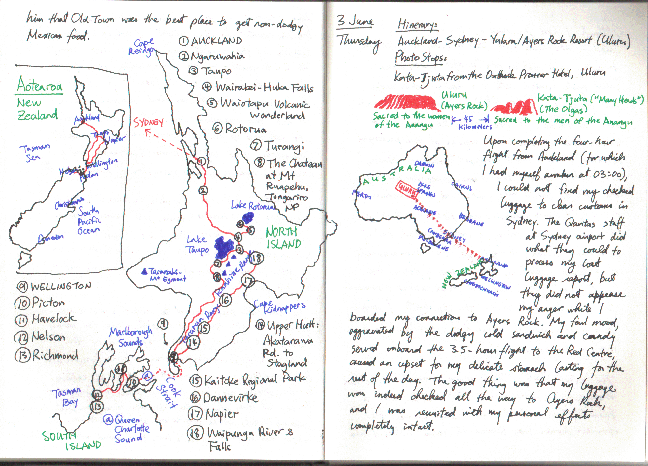 him that Old Town was the best place to get non-dodgy
Mexican food.
Cape
Reinga
① AUCKLAND
② Ngaruwahia
③ Taupo
④ Wairakei-Huka Falls
⑤ Waiotapu Volcanic
wonderland
⑥ Rotorua
⑦ Turangi
⑧ The Chateau
at Mt
Ruapehu,
Tongariro
NP
Aotearoa
New
Zealand
Auckland
Tasman
Sea
Wellington
South
Pacific
Ocean
SYDNEY
Lake Rotorua
Lake
Taupo
NORTH
ISLAND
Taranaki-
Mt Egmont
Cape
Kidnappers
⑨ WELLINGTON
⑩ Picton
⑪ Havelock
⑫ Nelson
⑬ Richmond
Marlborough
Sounds
Cook
Strait
Tasman
Bay
@ Queen
Charlotte
Sound
SOUTH
ISLAND
⑭ Upper Hutt:
Akatarawa
Rd. to
Staglands
⑮ Kaitoke Regional Park
⑯ Dannevirke
⑰ Napier
⑱ Waipunga River &
Falls
3 June
Thursday
Itinerary:
Auckland - Sydney - Yulara/Ayers Rock Resort (Uluru)
Photo Stops:
Kata-Tjuta from the Outback Pioneer Hotel, Uluru
Uluru
(Ayers Rock)
Sacred to the women
of the Anangu
45
Kilometers
Kata-Tjuta ("Many Heads")
(The Olgas)
Sacred to the men of the Anangu
AUSTRALIA
ULURU
SYDNEY
NEW ZEALAND
Upon completing the four-hour
flight from Auckland (for which
I had myself awaken at 03:00),
I could not find my checked
luggage to clear customs in
Sydney. The Qantas staff
at Sydney airport did
what they could to
process my lost
luggage report, but
they did not appease
my anger while I
boarded my connection to Ayers Rock. My foul mood,
aggravated by the dodgy cold sandwich and candy
served onboard the 3.5-hour flight to the Red Centre,
caused an upset for my delicate stomach lasting for the
rest of the day. The good thing was that my luggage
was indeed checked all the way to Ayers Rock,
and I was reunited with my personal effects
completely intact.